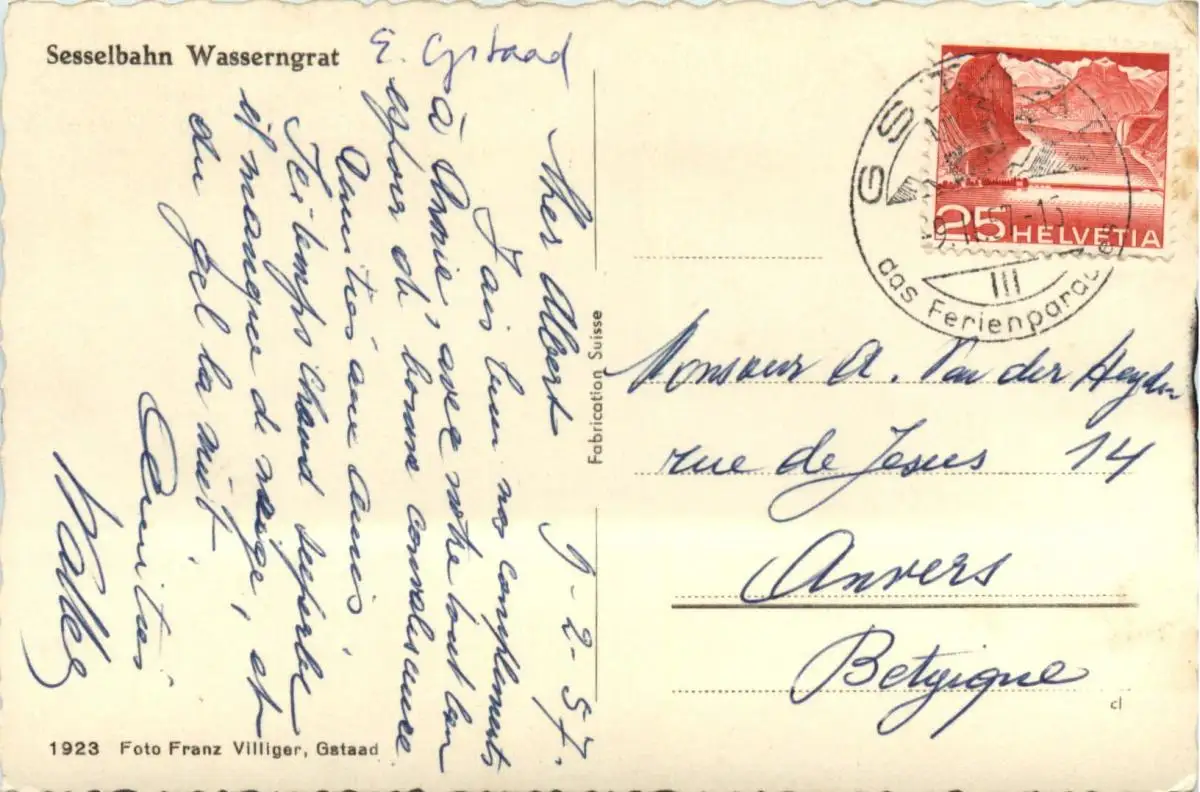 Sesselbahn Wasserngrat
Gstaad
Cher Albert 9-2-57.
Fais bien nos compliments
à Annie, avec notre tout bon
espoir de bonne convalescence
Amitiés aux amis
Ici temps chaud superbe
et manque de neige, et
du gel la nuit.
Amitiés
1923 Foto Franz Villiger, Gstaad
Fabrication Suisse
25 HELVETIA
GSTAAD
das Ferienparadies
III
Monsieur A. Van der Heyden
rue de Jesus 14
Anvers
Belgique
cl